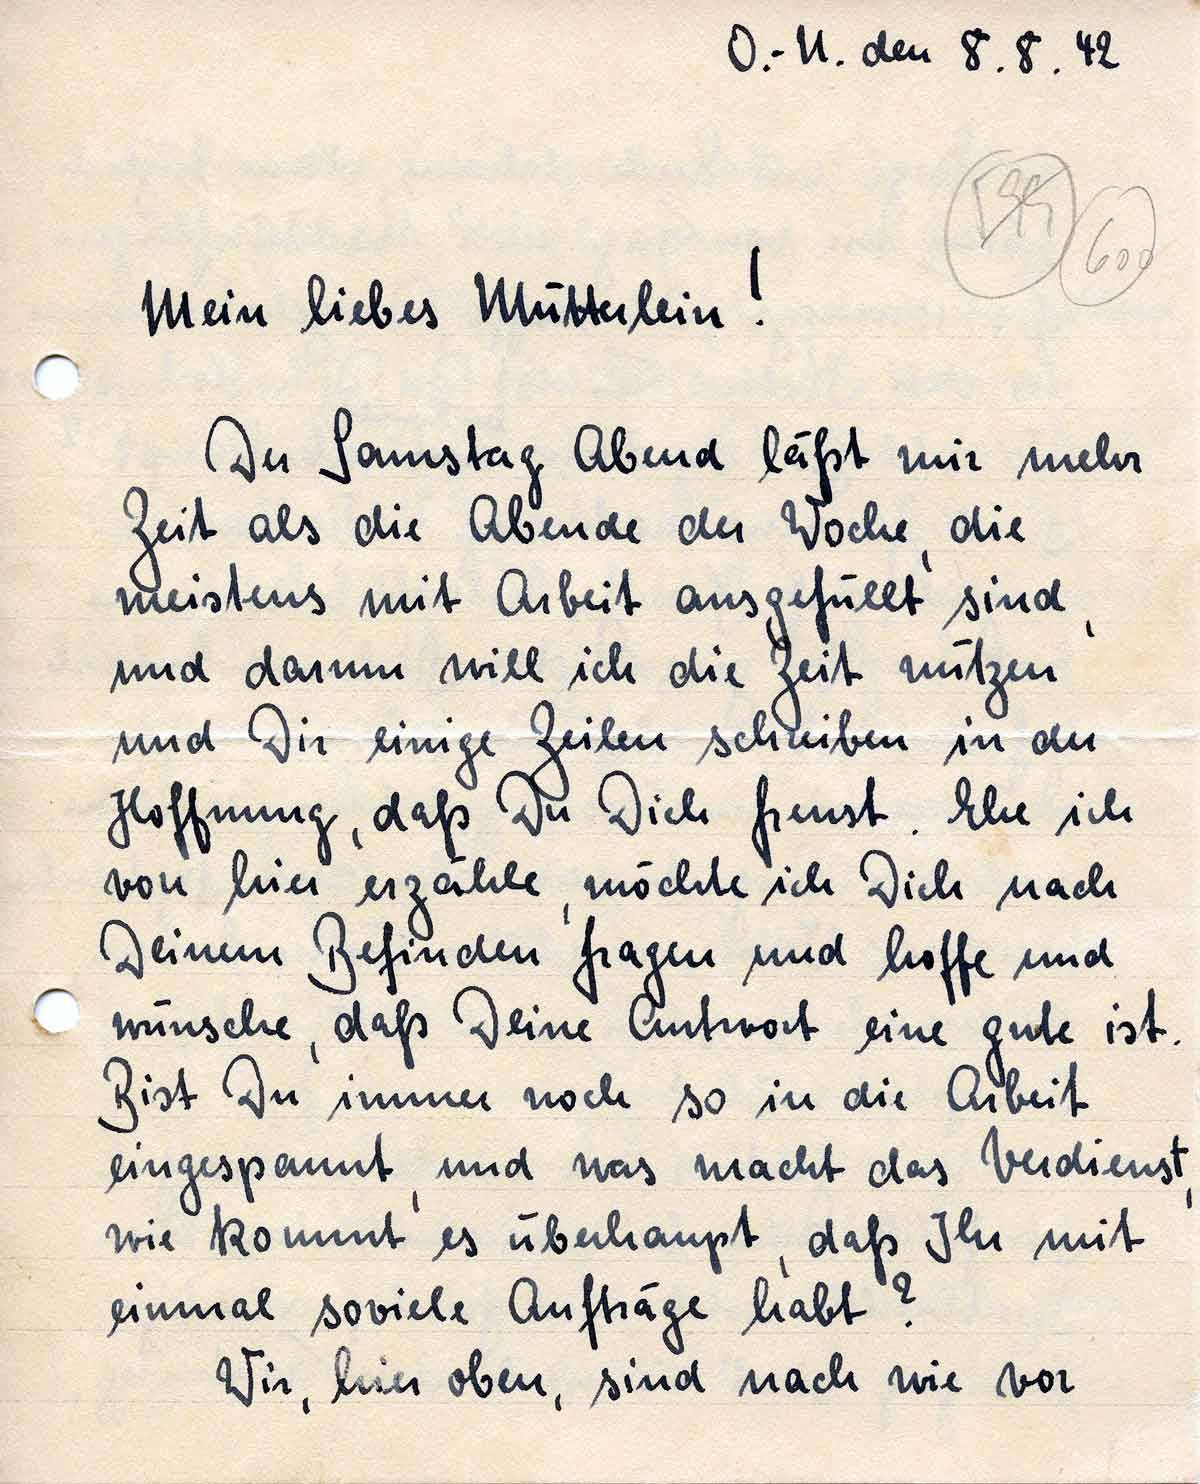 O.-U. den 8.8.42
599
600
Mein liebes Mütterlein!
Der Samstag Abend läßt mir mehr
Zeit als die Abende der Woche, die
meistens mit Arbeit ausgefüllt sind,
und darum will ich die Zeit nützen
und Dir einige Zeilen schreiben in der
Hoffnung, daß Du Dich freust. Ehe ich
von hier erzähle, möchte ich Dich nach
Deinem Befinden fragen und hoffe und
wünsche, daß Deine Antwort eine gute ist.
Bist Du immer noch so in die Arbeit
eingespannt, und was macht das Verdienst,
wie kommt es überhaupt, daß Ihr mit
einmal soviele Aufträge habt?
Wir, hier oben, sind nach wie vor